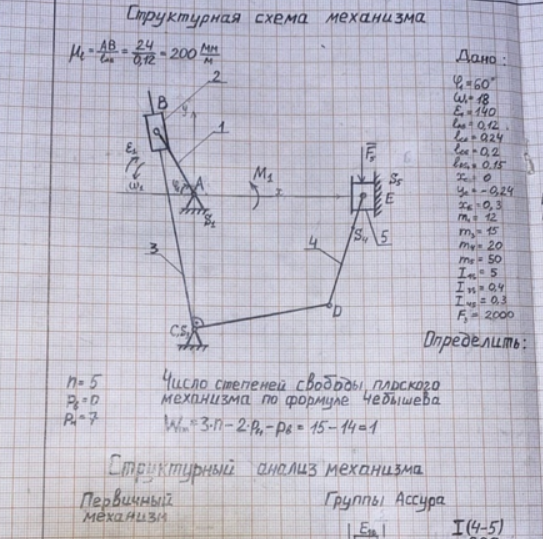 Структурная схема механизма
μₗ = AB/lₐᵦ = 24/0,12 = 200 мм/м
Дано:
φ₁=60°
ω₁=18
ε₁=140
l_AB=0,12
l_CD=0,24
l_DE=0,2
l_DS₄=0,15
x_C=0
y_C=-0,24
x_E=0,3
m₁=12
m₃=15
m₄=20
m₅=50
I₁ₛ=5
I₃ₛ=0,4
I₄ₛ=0,3
F₅=2000
Определить:
2
B
y
1
ε₁
ω₁
φ₁
A
S₁
M₁
x
F₅
S₅
E
S₄
5
4
3
D
C,S₃
n=5
p_в=0
p_н=7
Число степеней свободы плоского
механизма по формуле Чебышева
W=3·n-2·p_н-p_в=15-14=1
Структурный анализ механизма
Первичный
механизм
Группы Ассура
I(4-5)